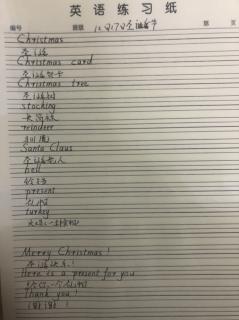 英语练习纸
编号 班级 12月17日圣诞节 第 页
Christmas
圣诞
Christmas card
圣诞贺卡
Christmas tree
圣诞树
stocking
长筒袜
reindeer
驯鹿
Santa Claus
圣诞老人
bell
铃铛
present
礼物
turkey
火鸡
Merry Christmas!
圣诞快乐!
Here is a present for you
给你一个礼物
Thank you!
谢谢!